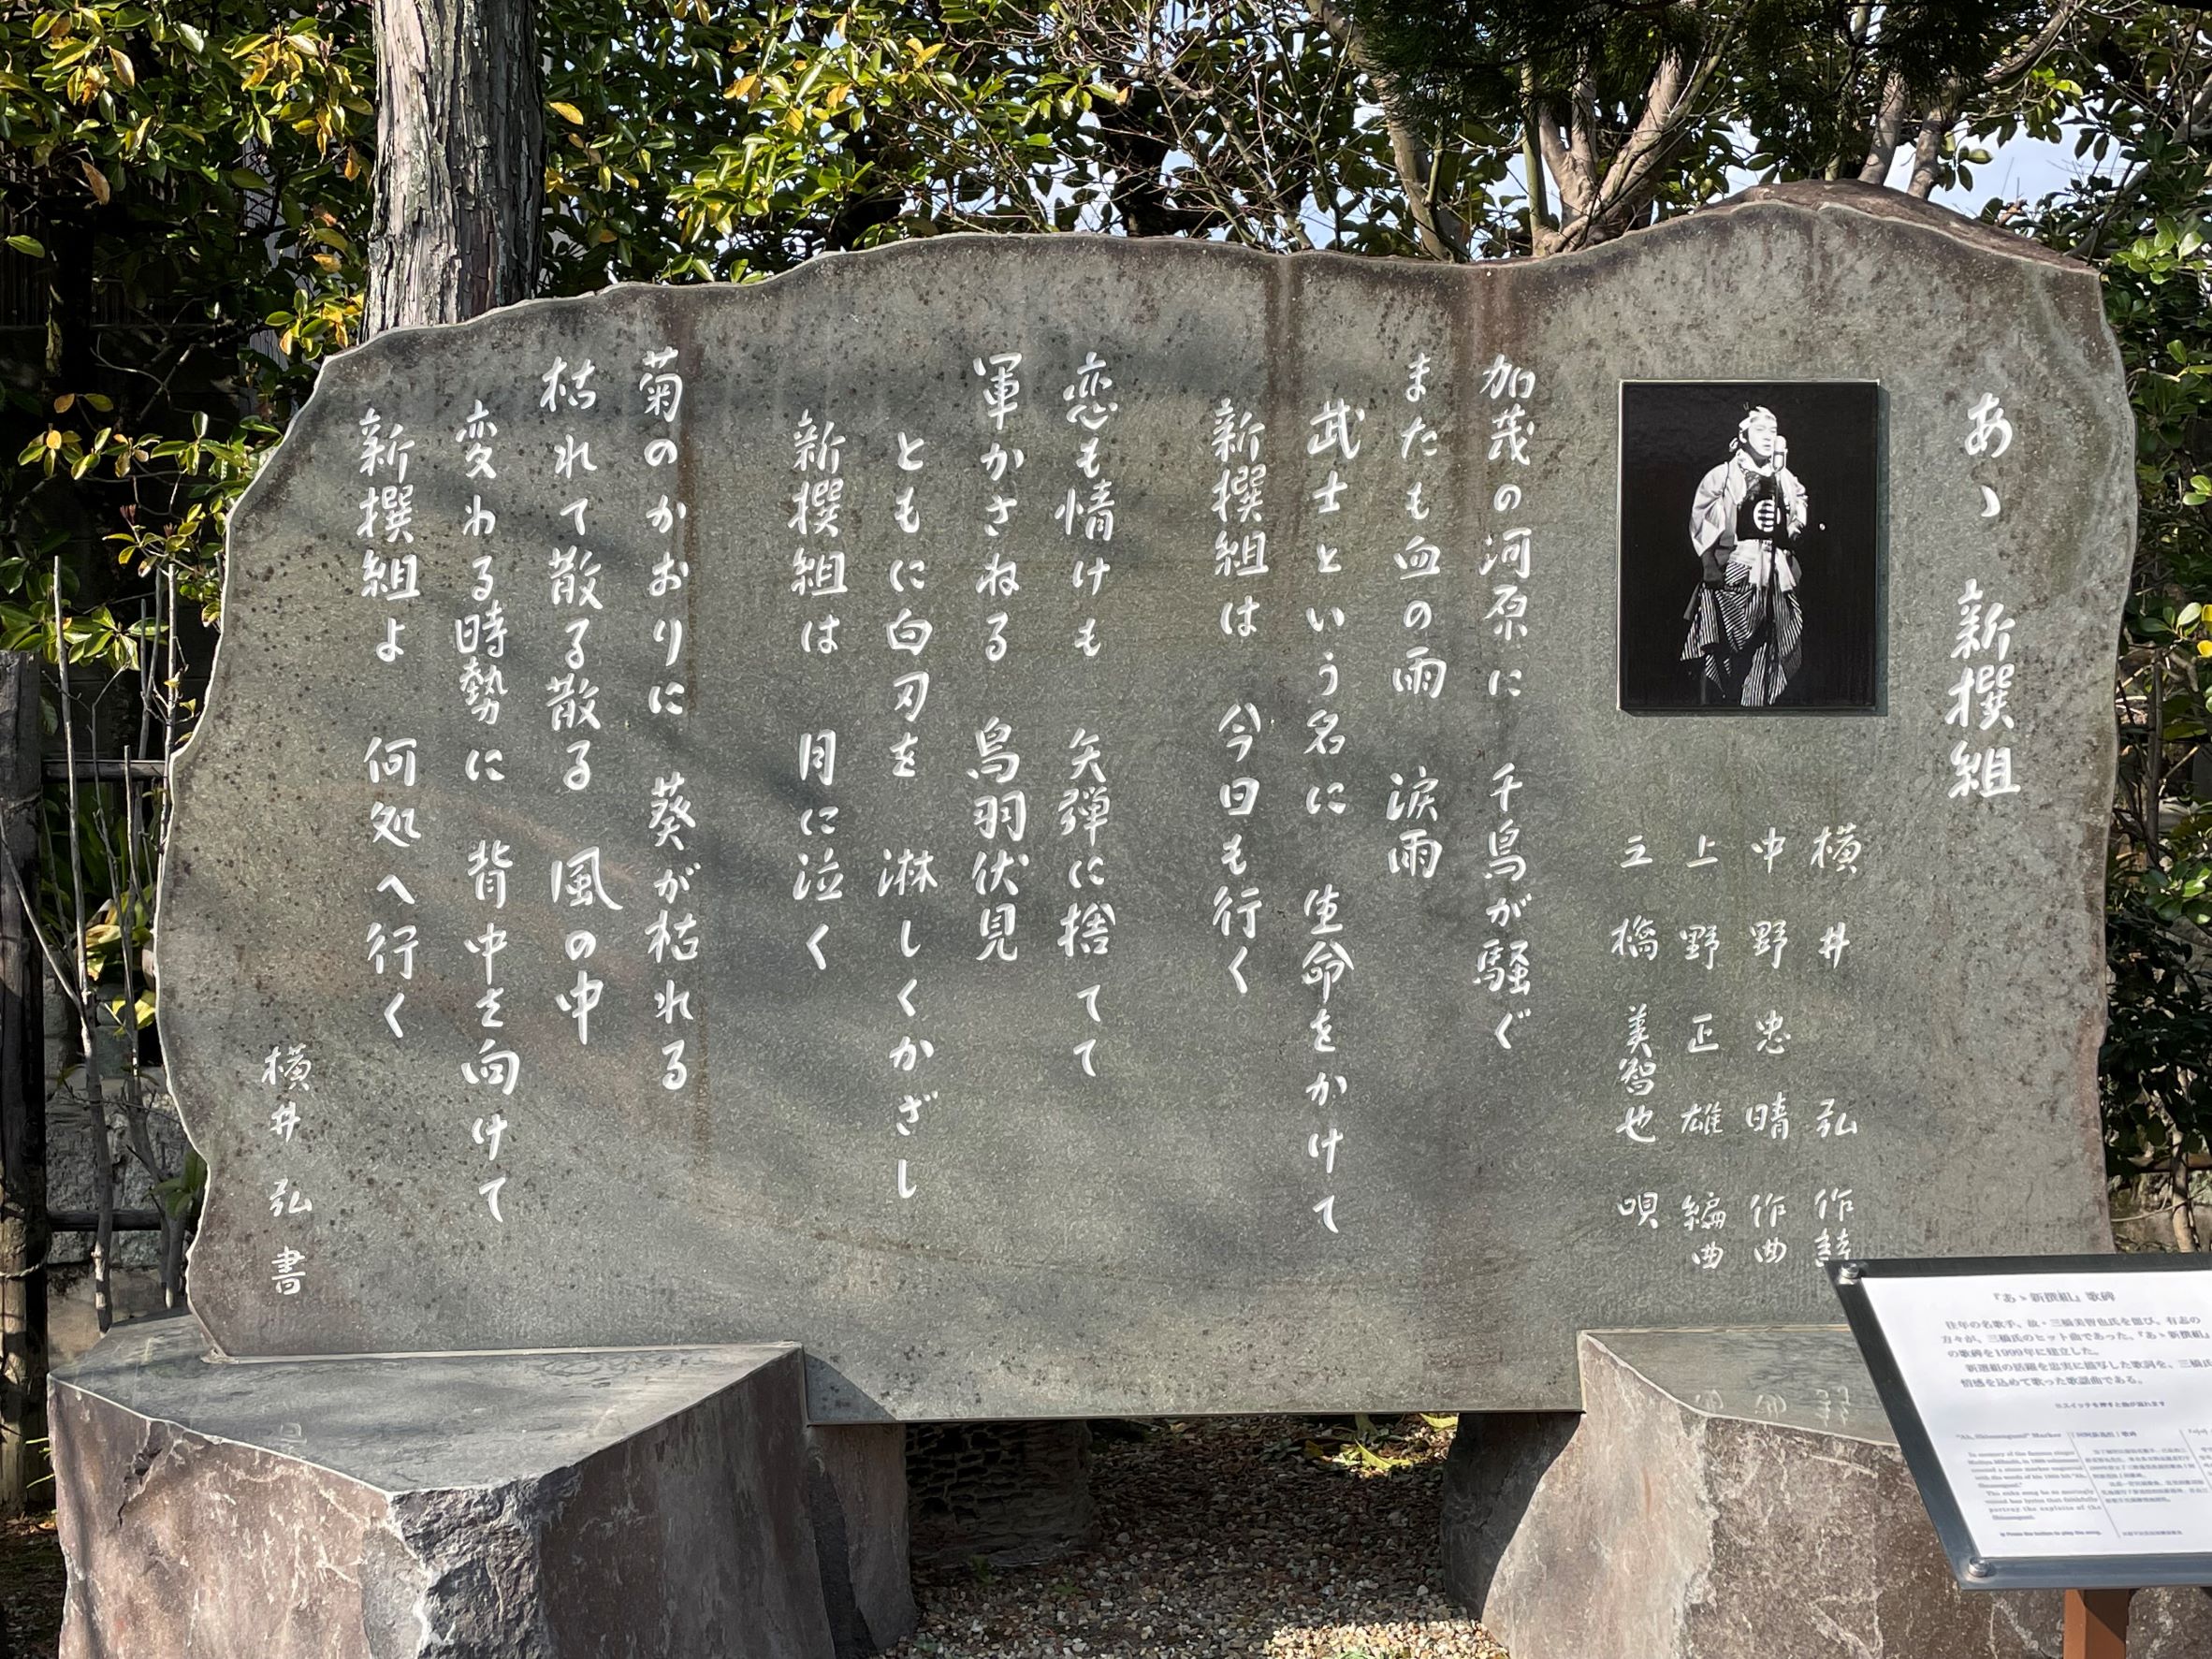 あゝ 新撰組
横井 弘 作詩
中野忠晴 作曲
上野正雄 編曲
三橋美智也 唄
加茂の河原に 千鳥が騒ぐ
またも血の雨 涙雨
武士という名に 生命をかけて
新撰組は 今日も行く
恋も情けも 矢弾に捨てて
軍かさねる 鳥羽伏見
ともに白刃を 淋しくかざし
新撰組は 月に泣く
菊のかおりに 葵が枯れる
枯れて散る散る 風の中
変わる時勢に 背中を向けて
新撰組よ 何処へ行く
横井 弘 書
『あゝ新撰組』歌碑
往年の名歌手、故・三橋美智也氏を偲び、有志の
方々が、三橋氏のヒット曲であった、『あゝ新撰組』
の歌碑を1999年に建立した。
新選組の活躍を忠実に描写した歌詞を、三橋氏
情感を込めて歌った歌謡曲である。
※スイッチを押すと曲が流れます
"Ah, Shinsengumi" Marker
In memory of the famous singer
Michiya Mihashi, in 1999 volunteers
with the words of his 1955 hit "Ah,
Shinsengumi."
portray the exploits of the
Shinsengumi.